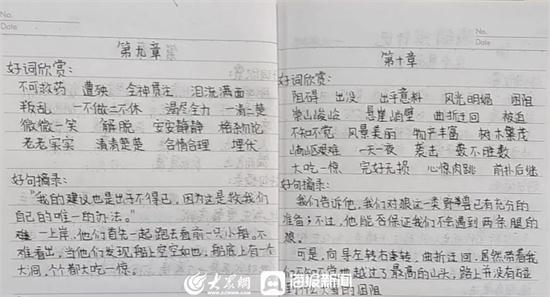 No.
Date
第九章
好词欣赏：
不可救药 遭殃 全神贯注 泪流满面
叛乱 一不做二不休 竭尽全力 一清二楚
微微一笑 解脱 安安静静 格杀勿论
老老实实 清清楚楚 合情合理 埋伏
好句摘录：
"我的建议也是出于不得已，因为这是救我们
自己的唯一的办法。"
一上岸，他们首先一起跑去看前一只小船，不
难看出，当他们发现，船上空空如也，船底上有一个
大洞，个个都大吃一惊。
No.
Date
第十章
好词欣赏：
阻碍 出没 出乎意料 风光明媚 困阻
崇山峻岭 悬崖峭壁 曲折迂回 被迫
不知不觉 风景美丽 物产丰富 树木繁茂
崎岖艰难 一天一夜 袭击 数不胜数
大吃一惊 完好无损 心惊肉跳 前扑后继
好句摘录：
我们告诉他，我们对狼这一类野兽已有充分的
准备；不过，他能否保证我们不会遇到两条腿的
狼。
可是，向导左转右连转，曲折迂回，居然带着我
们不知不觉地越过了最高的山头，路上并没有碰
到什么大雪的困阻
大众网
海报新闻